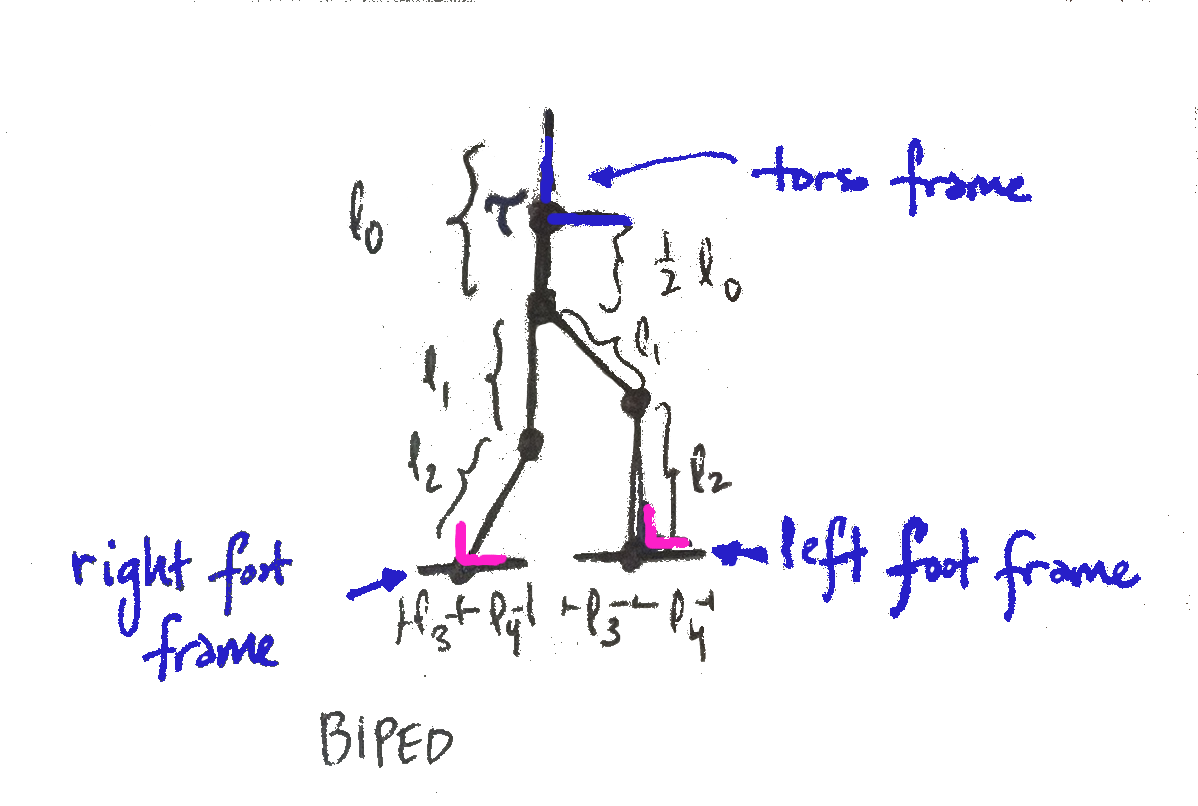 torso frame
l0
τ
1/2 l0
l1
l1
l2
l2
right foot
frame
left foot frame
l3 l4
l3 l4
BIPED